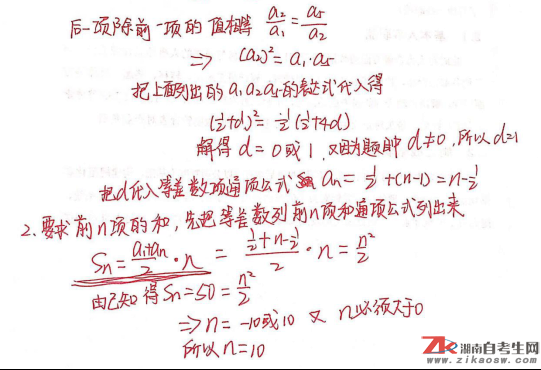 后一项除前一项的值相等 a₂/a₁ = a₅/a₂
⇒ (a₂)² = a₁·a₅
把上面列出的a₁a₂a₅的表达式代入得
(½+d)² = ½(½+4d)
解得 d = 0或1, 又因为题中 d≠0, 所以d=1
把d代入等差数项通项公式 an = ½+(n-1) = n-½
2. 要求前n项的和, 先把等差数列前n项和通项公式列出来
Sn = (a₁+an)/2 · n = (½+n-½)/2 · n = n²/2
由已知得Sn=50 = n²/2
⇒ n = -10或10 又 n必须大于0
所以 n=10
ZK 湖南自考生网
www.zikaosw.com